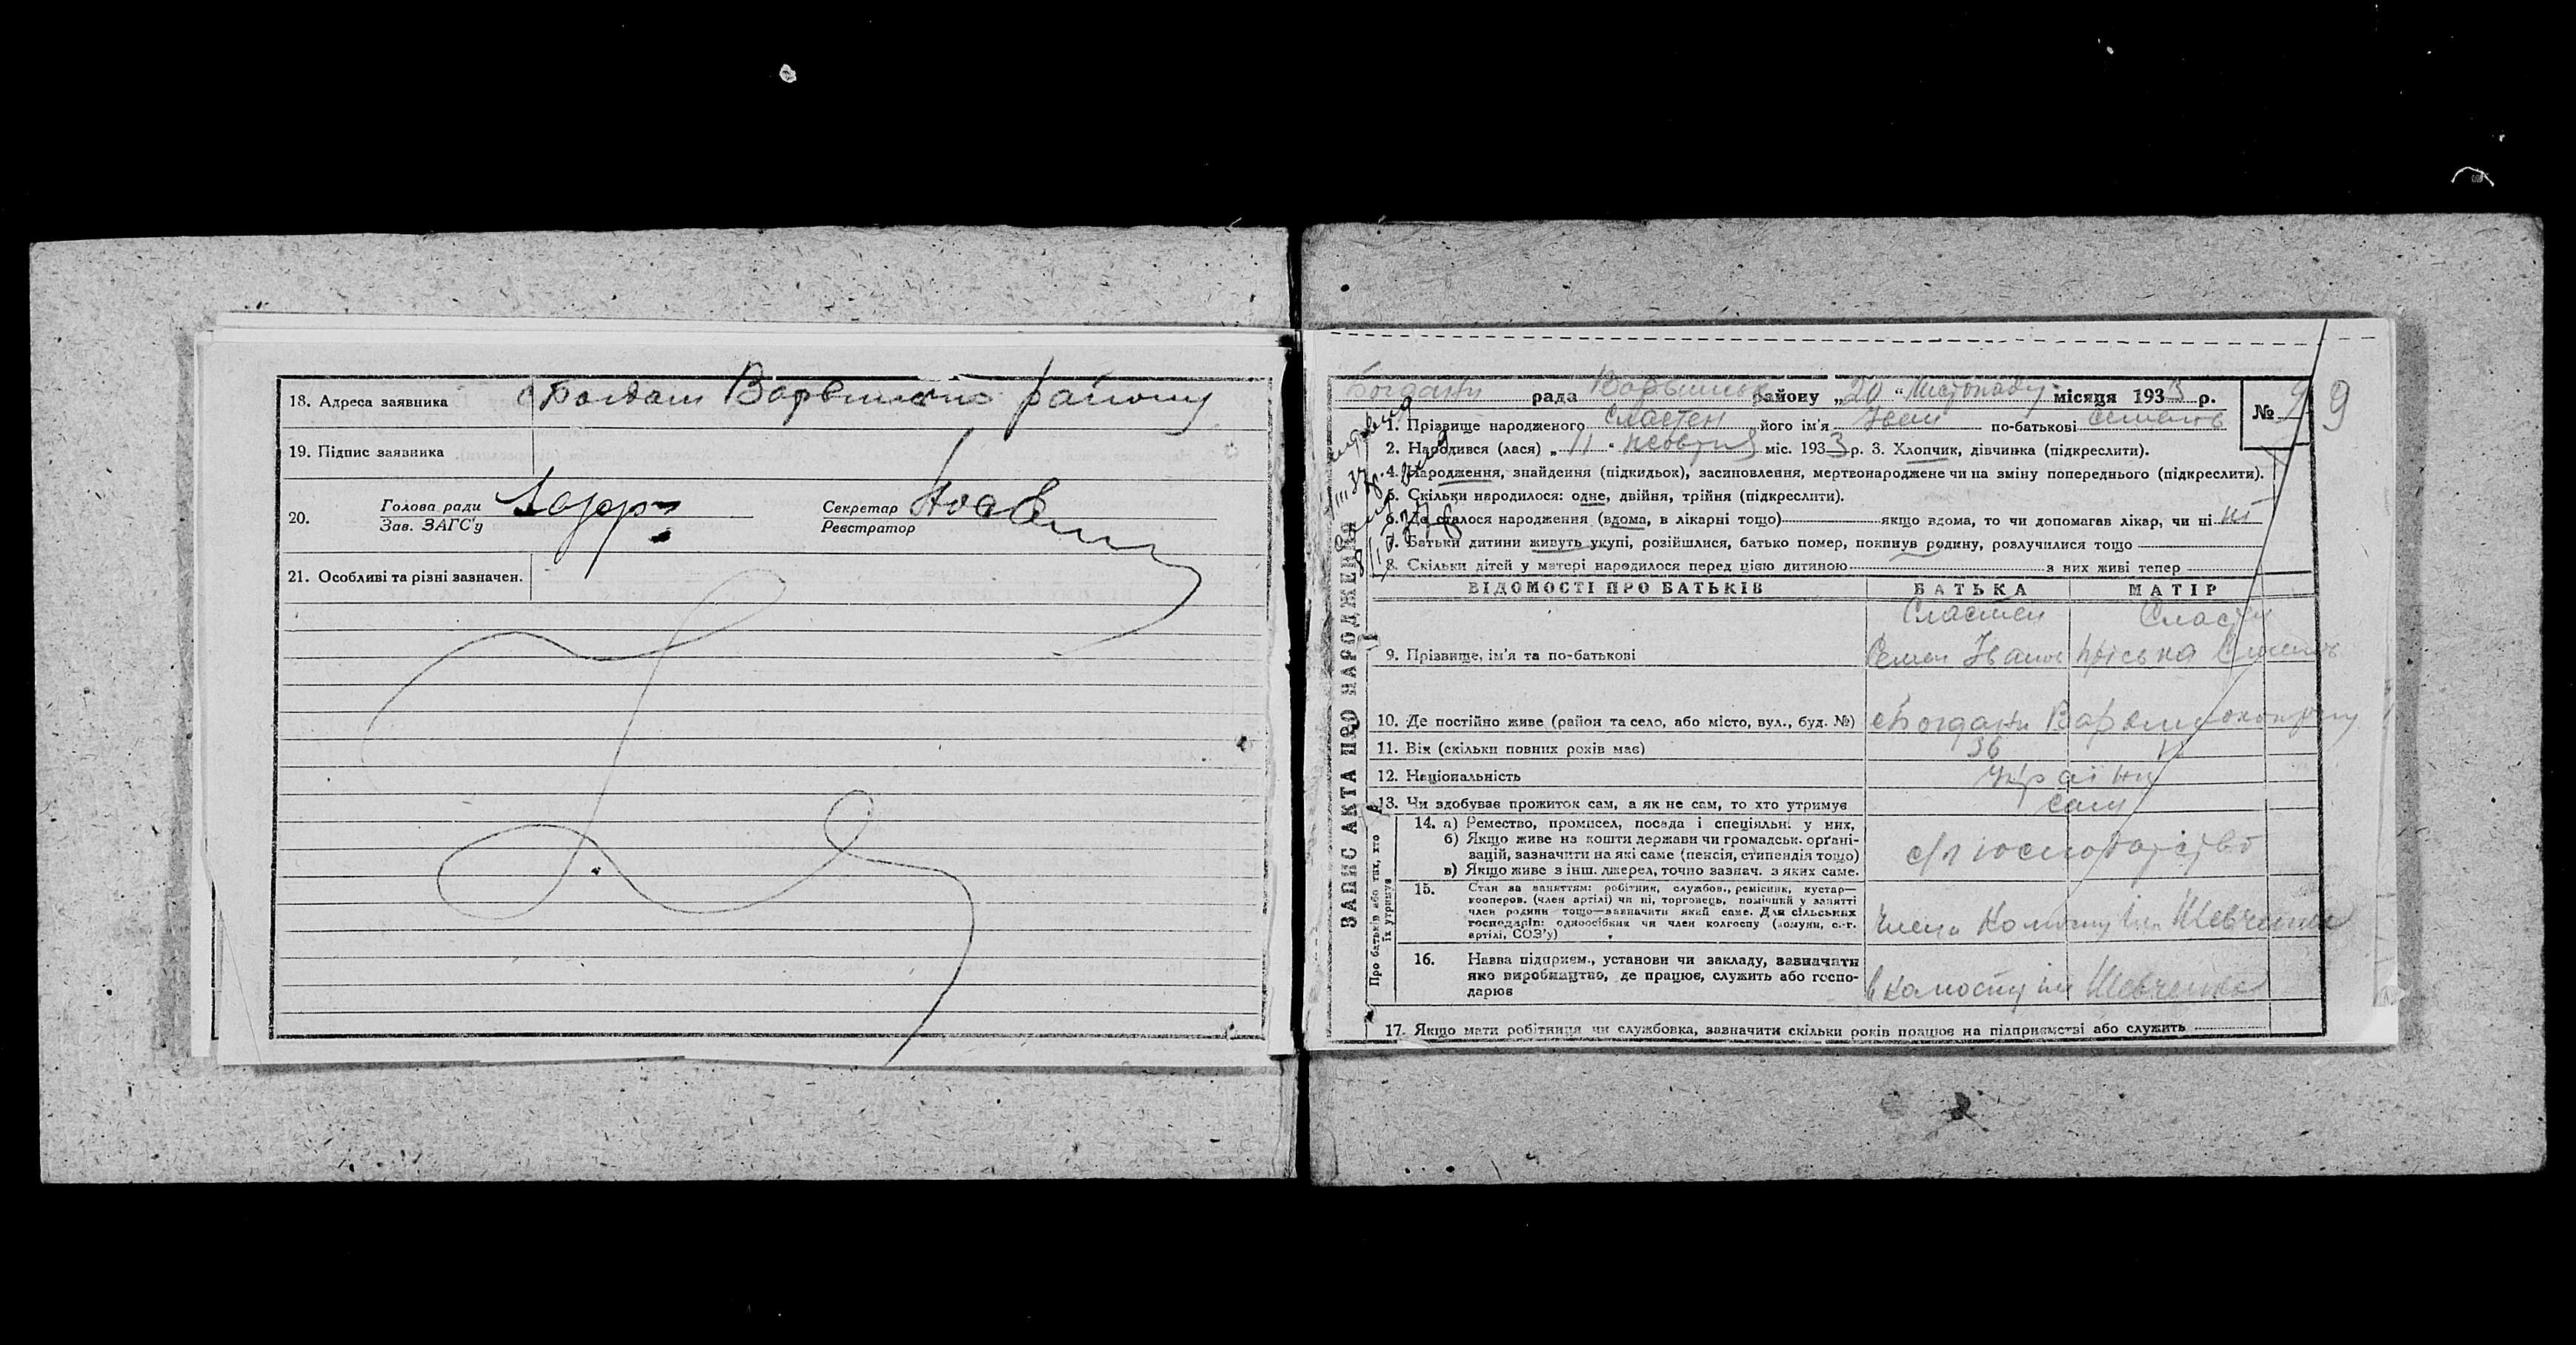 18. Адреса заявника с Богдани Варвинського району
19. Підпис заявника
20. Голова ради
Зав. ЗАГС'у
Секретар
Реєстратор
21. Особливі та різні зазначен.
ЗАПИС АКТА ПРО НАРОДЖЕННЯ
Богдани рада Варвинськ району „20“ листопаду місяця 1933 р.
№ 9 9
1. Прізвище народженого Сластен його ім'я Іван по-батькові Семенов
2. Народився (лася) „11“ жовтня міс. 1933 р. 3. Хлопчик, дівчинка (підкреслити).
4. Народження, знайдення (підкидьок), засиновлення, мертвонароджене чи на зміну попереднього (підкреслити).
5. Скільки народилося: одне, двійня, трійня (підкреслити).
6. Де сталося народження (вдома, в лікарні тощо) якщо вдома, то чи допомагав лікар, чи ні ні
7. Батьки дитини живуть укупі, розійшлися, батько помер, покинув родину, розлучилися тощо
8. Скільки дітей у матері народилося перед цією дитиною з них живі тепер
ВІДОМОСТІ ПРО БАТЬКІВ БАТЬКА МАТІР
Сластен Сластен
9. Прізвище, ім'я та по-батькові Семен Іванов Пріська
10. Де постійно живе (район та село, або місто, вул., буд. №) с Богдани Варвинського р-ну
11. Вік (скільки повних років має) 36
12. Національність україн
13. Чи здобував прожиток сам, а як не сам, то хто утримує сами
Про батьків або тих, хто їх утримує
14. а) Ремество, промисел, посада і спеціяльн. у них,
б) Якщо живе на кошти держави чи громадськ. органі-
зацій, зазначити на які саме (пенсія, стипендія тощо)
в) Якщо живе з інш. джерел, точно зазнач. з яких саме.
с/г господарство
15. Стан за заняттям: робітник, службов., ремісник, кустар—
кооперов. (член артілі) чи ні, торговець, помічний у занятті
член родини тощо—зазначити який саме. Для сільських
господарів: одноосібник чи член колгоспу (комуни, с.-г.
артілі, СОЗ'у)
члени колгоспу ім Шевченка
16. Назва підприєм., установи чи закладу, зазначити
яке виробництво, де працює, служить або госпо-
дарює
в колгоспу ім Шевченка
17. Якщо мати робітниця чи службовка, зазначити скільки років працює на підприємстві або служить